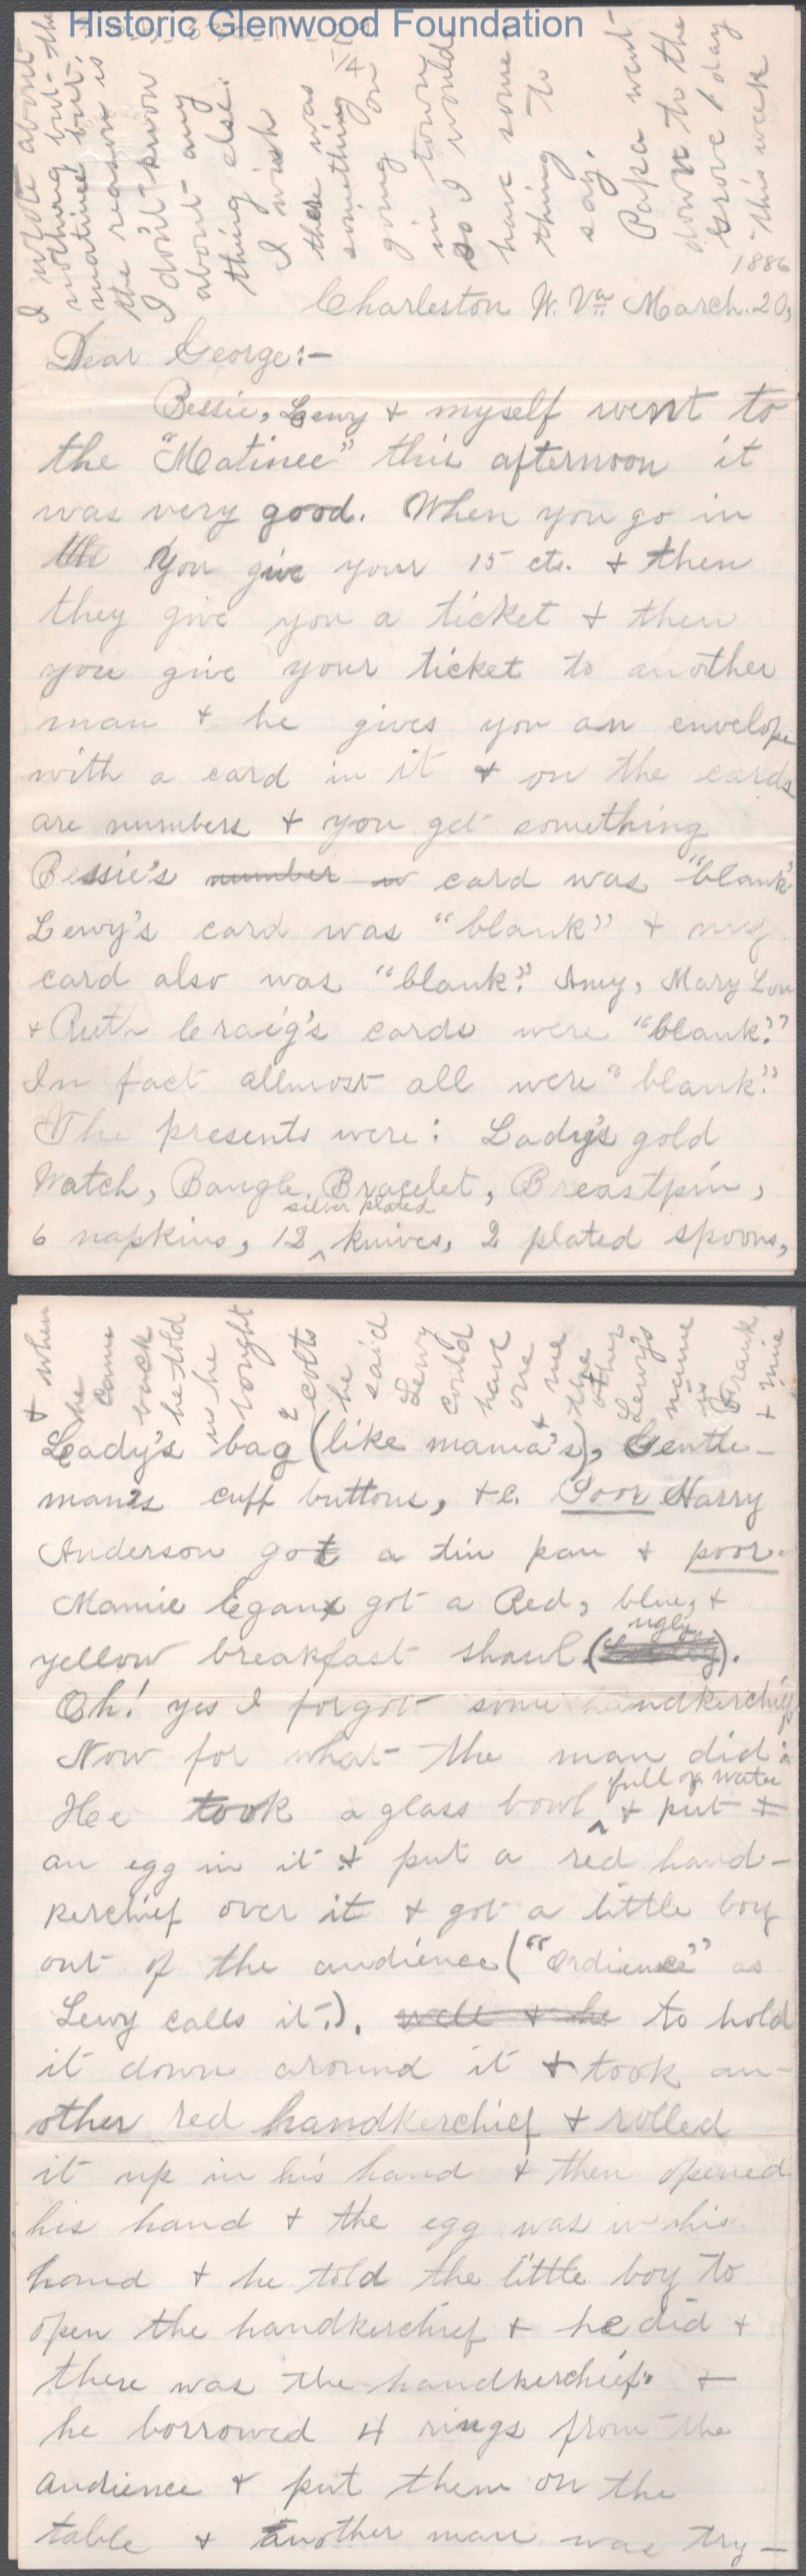 Historic Glenwood Foundation
I wrote about
nothing but the
matinee but
the reason is
I don't know
about any
thing else.
I wish
there was
something
going on
in town
so I would
have some
thing to
say.
Papa went
down to the
Grove 1 day
this week
1886
Charleston W. Va March. 20,
Dear George:-
Bessie, Lewy & myself went to
the "Matinee" this afternoon it
was very good. When you go in
the You give your 15 cts. & then
they give you a ticket & then
you give your ticket to another
man & he gives you an envelope
with a card in it & on the cards
are numbers & you get something
Bessie's number w card was "blank"
Lewy's card was "blank" & my
card also was "blank." Amy, Mary Lou
& Ruth Craig's cards were "blank."
In fact allmost all were "blank."
The presents were: Lady's gold
Watch, Bangle Bracelet, Breastpin,
silver plated
6 napkins, 12 ^ knives, 2 plated spoons,
& when
he came
back
he told
us he
bought
2 colts
he
said
Lewy
could
have
one
& me
the
other
Lewy's
name
is
Frank
& mine
Lady's bag (like mama's), Gentle-
man's cuff buttons, &c. Poor Harry
Anderson got a tin pan & poor
Mamie Egan got a Red, blue, &
yellow breakfast shawl. (ugly).
Oh! yes I forgot some handkerchiefs
Now for what the man did:
full of water
Hee took a glass bowl ^ & put
an egg in it & put a red hand-
kerchief over it & got a little boy
out of the audience ("Ordience" as
Lewy calls it.). well & he to hold
it down around it & took an-
other red handkerchief & rolled
it up in his hand & then opened
his hand & the egg was in his
hand & he told the little boy to
open the handkerchief & he did &
there was the handkerchief. &
he borrowed 4 rings from the
audience & put them on the
table & another man was try-